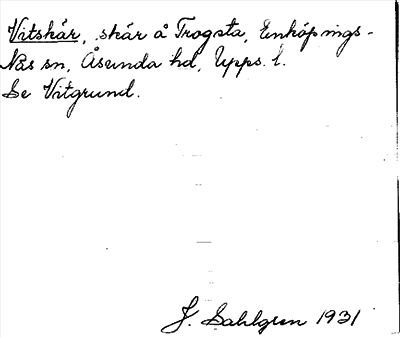 Vitskär, skär å Trogsta, Enköpings-
Näs sn, Åsunda hd, Upps. l.
Se Vitgrund.
J. Sahlgren 1931